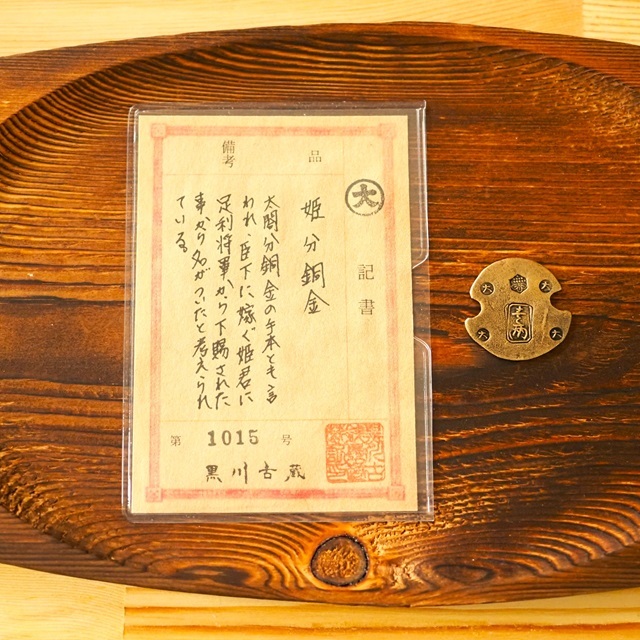 大
記書
品
備考
姫分銅金
太閤分銅金の手本とも言
われ、臣下に嫁ぐ姫君に
足利将軍から下賜された
事から名がついたと考えられ
ている。
第 1015 号
黒川古蔵
大
大
大
大